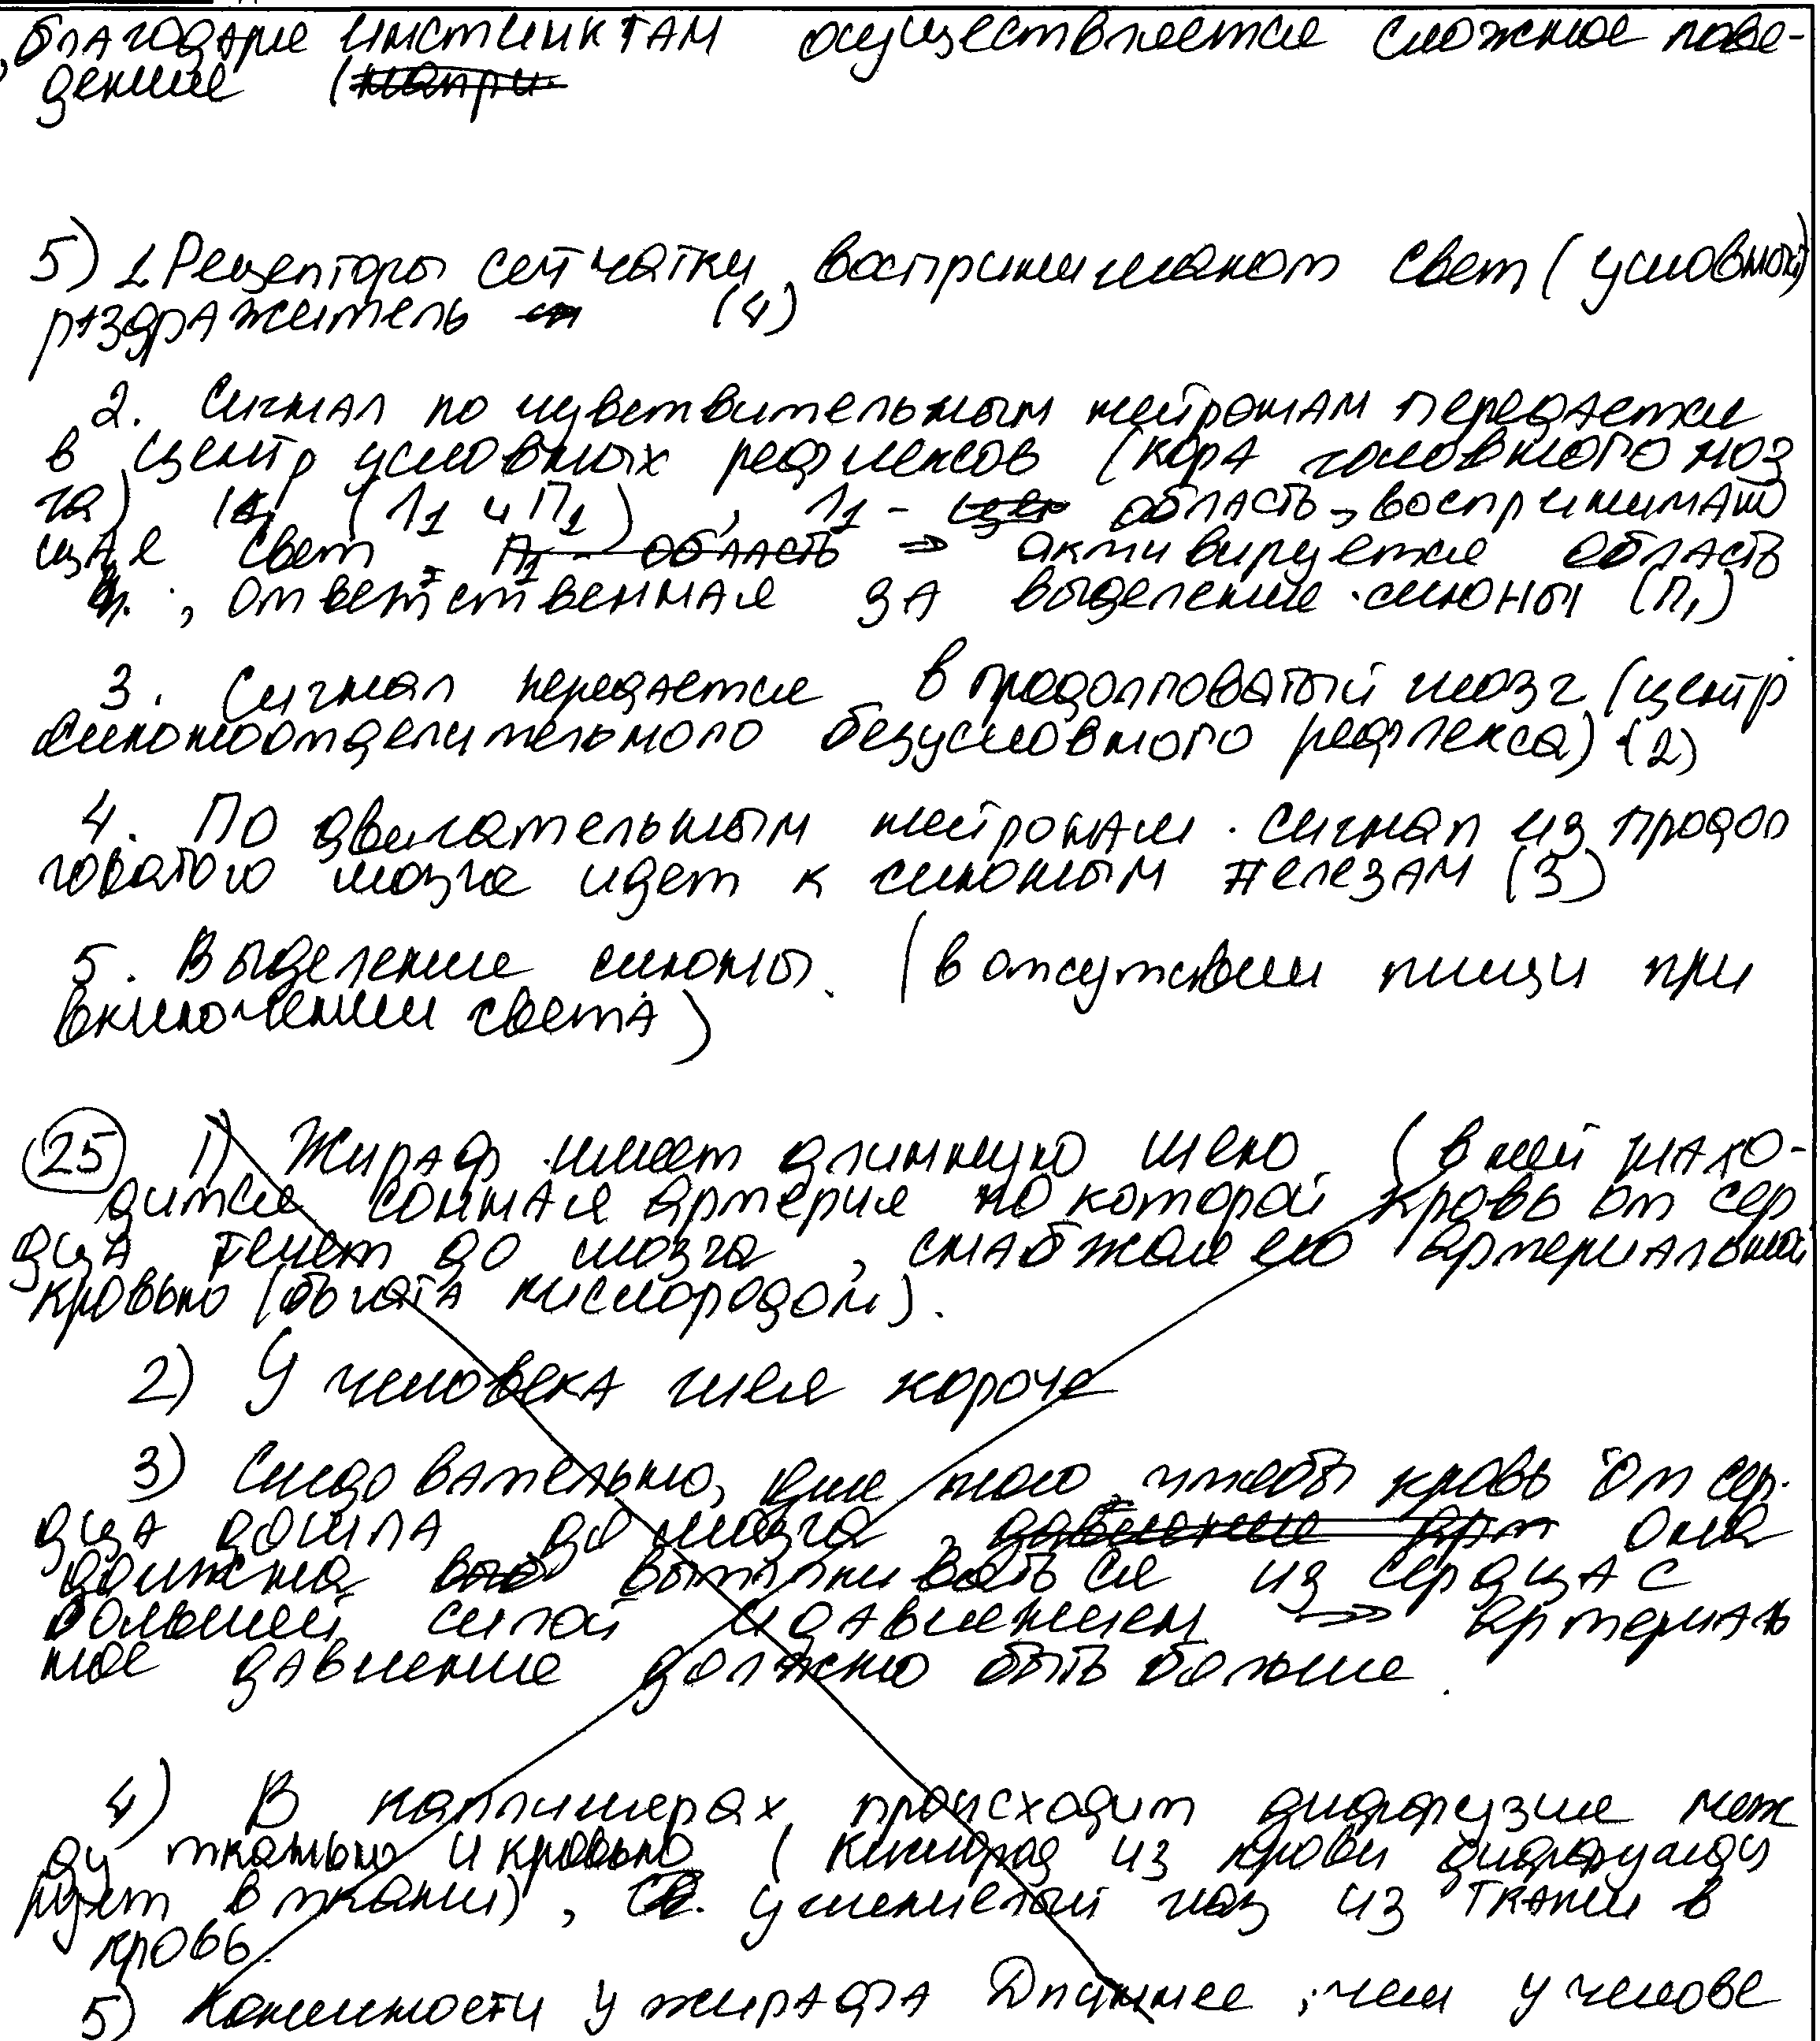 благодаря инстинктам осуществляется сложное пове-
дение (напри-
5) 1. Рецепторы сетчатки воспринимают свет (условный)
раздражитель (4)
2. Сигнал по чувствительным нейронам передаётся
в центр условных рефлексов (кора головного моз
га) (Л1 и П1), Л1 - область, воспринимаю
щая свет, П1 - область => активируется область
, ответственная за выделение слюны (П1)
3. Сигнал передается в продолговатый мозг (центр
слюноотделительного безусловного рефлекса) (2)
4. По двигательным нейронам сигнал из продол
говатого мозга идет к слюным железам (3)
5. Выделение слюны. (в отсутствии пищи при
включении света)
25 1) Жираф имеет длинную шею. (в ней нахо-
дится сонная артерия по которой кровь от сер
дца течет до мозга, снабжая его артериальной
кровью (богата кислородом).
2) У человека шея короче
3) Следовательно, для того, чтобы кровь от сер-
дца дошла до мозга, давление арт она
должна выталкиваться из сердца с
большей силой и давлением => артериаль
ное давление должно быть больше.
4) В капиллярах происходит диффузия меж
ду тканью и кровью (кислород из крови диффунди
рует в ткани), углекислый газ из ткани в
кровь.
5) Конечности у жирафа длиннее, чем у челове